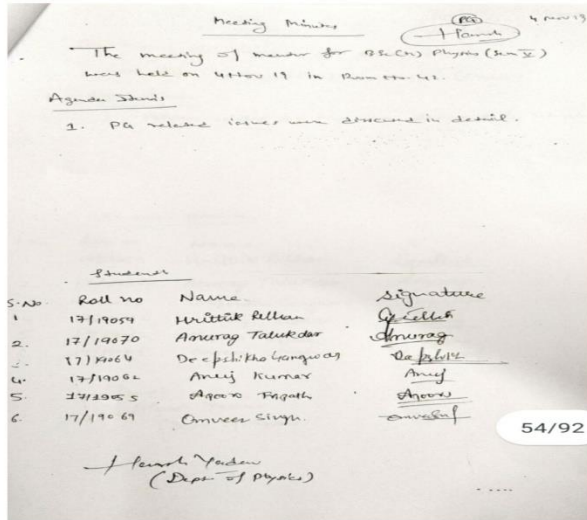 Meeting Minutes
PG
4 Nov 19
Harsh
The meeting of mentor for BSc(H) Physics (Sem V)
was held on 4 Nov 19 in Room No. 42.
Agenda Items
1. PG related issues were discussed in detail.
Students
S.No Roll no Name Signature
1 17/19059 Hrittik
2. 17/19070 Anurag Talukdar Anurag
17/19064 Deepshikha Gangwar
4. 17/19062 Anuj Kumar Anuj
5. 17/19055 Apoorv Apoorv
6. 17/19069 Omveer Singh
54/92
Harsh Yadav
(Dept of Physics)